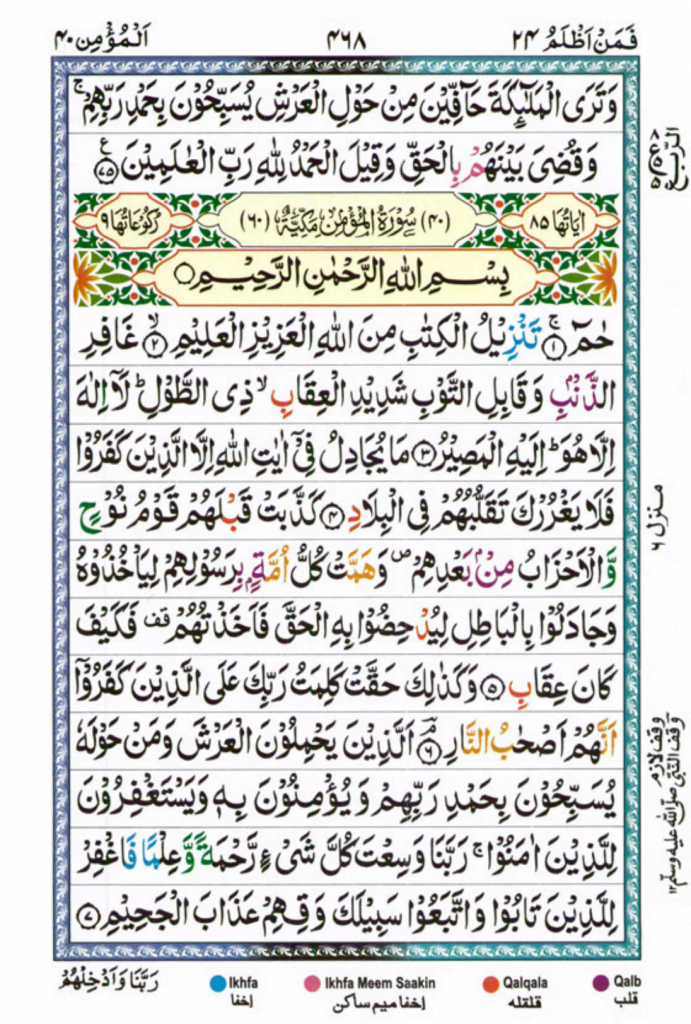 فَمَنْ اَظْلَمُ ٢٤ ٤٦٨ اَلْمُؤْمِن ٤٠
وَتَرَى الْمَلٰٓئِكَةَ حَآفِّيْنَ مِنْ حَوْلِ الْعَرْشِ يُسَبِّحُوْنَ بِحَمْدِ رَبِّهِمْ ۚ
وَقُضِىَ بَيْنَهُمْ بِالْحَقِّ وَقِيْلَ الْحَمْدُ لِلّٰهِ رَبِّ الْعٰلَمِيْنَ ﴿٧٥﴾ ع
اٰيَاتُهَا ٨٥ (٤٠) سُوْرَةُ الْمُؤْمِنِ مَكِّيَّةٌ (٦٠) رُكُوْعَاتُهَا ٩
بِسْمِ اللّٰهِ الرَّحْمٰنِ الرَّحِيْمِ
حٰمٓ ۚ ﴿١﴾ تَنْزِيْلُ الْكِتٰبِ مِنَ اللّٰهِ الْعَزِيْزِ الْعَلِيْمِ ۙ ﴿٢﴾ غَافِرِ
الذَّنْۢبِ وَقَابِلِ التَّوْبِ شَدِيْدِ الْعِقَابِ ۙ ذِى الطَّوْلِ ؕ لَاۤ اِلٰهَ
اِلَّا هُوَ ؕ اِلَيْهِ الْمَصِيْرُ ﴿٣﴾ مَا يُجَادِلُ فِىْۤ اٰيٰتِ اللّٰهِ اِلَّا الَّذِيْنَ كَفَرُوْا
فَلَا يَغْرُرْكَ تَقَلُّبُهُمْ فِى الْبِلَادِ ﴿٤﴾ كَذَّبَتْ قَبْلَهُمْ قَوْمُ نُوْحٍ
وَّالْاَحْزَابُ مِنْۢ بَعْدِهِمْ ۪ وَهَمَّتْ كُلُّ اُمَّةٍۢ بِرَسُوْلِهِمْ لِيَاْخُذُوْهُ
وَجَادَلُوْا بِالْبَاطِلِ لِيُدْحِضُوْا بِهِ الْحَقَّ فَاَخَذْتُهُمْ قف فَكَيْفَ
كَانَ عِقَابِ ﴿٥﴾ وَكَذٰلِكَ حَقَّتْ كَلِمَتُ رَبِّكَ عَلَى الَّذِيْنَ كَفَرُوْۤا
اَنَّهُمْ اَصْحٰبُ النَّارِ ۘ ﴿٦﴾ اَلَّذِيْنَ يَحْمِلُوْنَ الْعَرْشَ وَمَنْ حَوْلَهٗ
يُسَبِّحُوْنَ بِحَمْدِ رَبِّهِمْ وَيُؤْمِنُوْنَ بِهٖ وَيَسْتَغْفِرُوْنَ
لِلَّذِيْنَ اٰمَنُوْا ۚ رَبَّنَا وَسِعْتَ كُلَّ شَىْءٍ رَّحْمَةً وَّعِلْمًا فَاغْفِرْ
لِلَّذِيْنَ تَابُوْا وَاتَّبَعُوْا سَبِيْلَكَ وَقِهِمْ عَذَابَ الْجَحِيْمِ ﴿٧﴾
رَبَّنَا وَاَدْخِلْهُمْ
الربع
منزل ٦
وقف لازم
وقف النبى صلى الله عليه وسلم ١٢
Ikhfa Ikhfa Meem Saakin Qalqala Qalb
إخفا إخفا ميم ساكن قلقله قلب